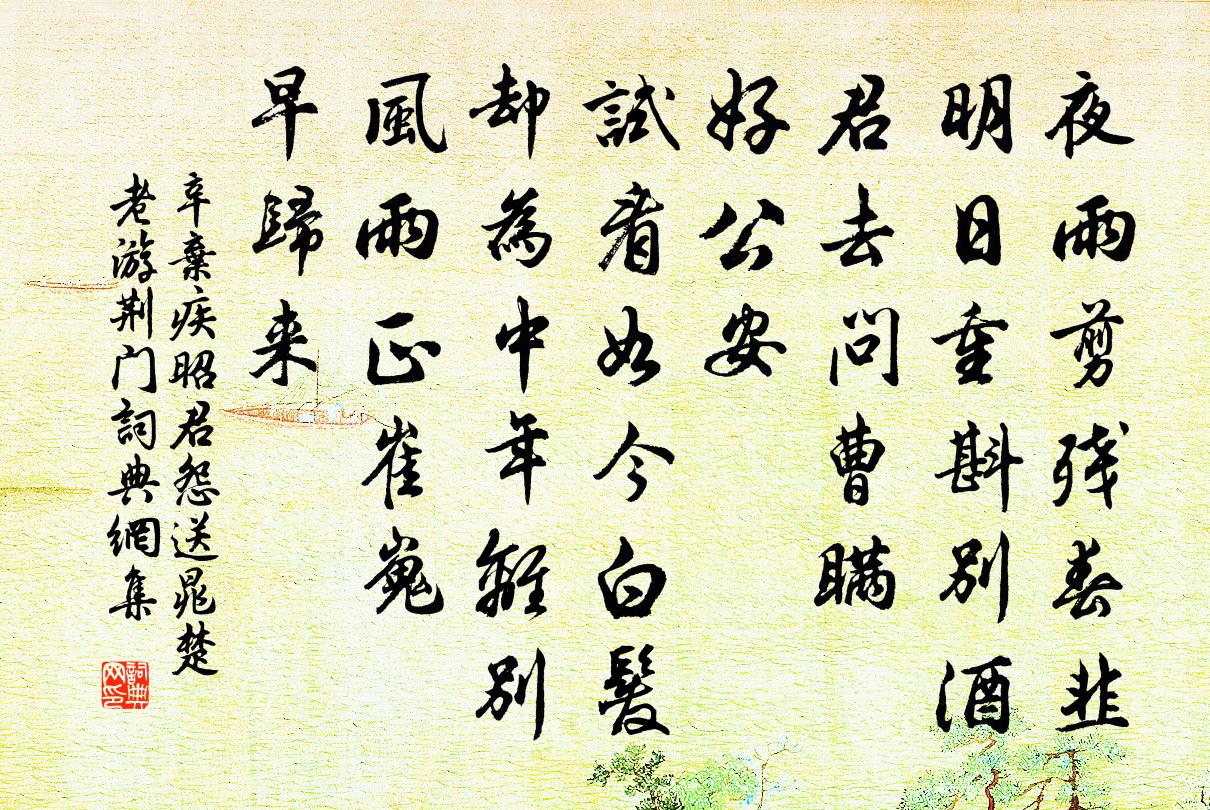 夜雨剪残春韭
明日重斟别酒
君去问曹瞒
好公安
試看如今白髮
却為中年離别
風雨正崔嵬
早歸来
辛棄疾昭君怨送晁楚
老游荆门詞典網集
詞典网印